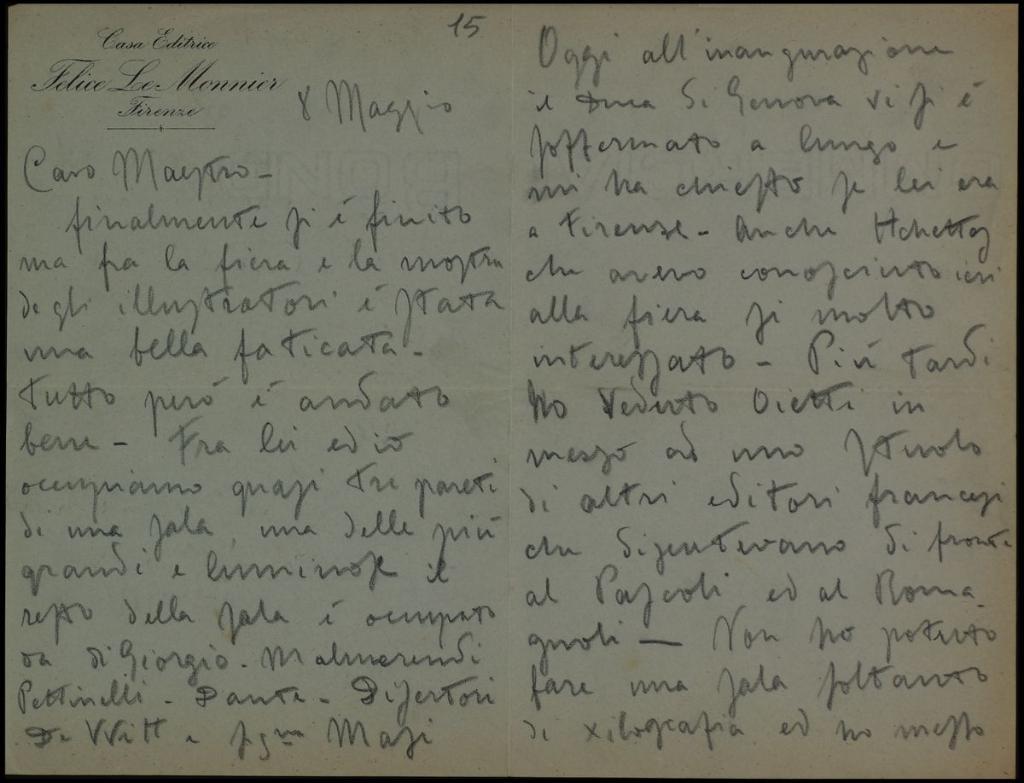 15
Casa Editrice
Felice Le Monnier
Firenze
8 Maggio
Caro Maestro -
finalmente si è finito
ma fra la fiera e la mostra
degli illustratori è stata
una bella faticata -
Tutto però è andato
bene - Fra lei ed io
occupiamo quasi tre pareti
di una sala, una delle più
grandi e luminose il
resto della sala è occupato
da di Giorgio - Malmerendi
Pettinelli - Dante - Disertori
De Witt e sgna Masi
Oggi all'inaugurazione
il Duca di Genova vi si è
soffermato a lungo e
mi ha chiesto se lei era
a Firenze - Anche
che avevo conosciuto ieri
alla fiera si molto
interessato - Più tardi
ho veduto Oietti in
mezzo ad uno stuolo
di altri editori francesi
che discutevano di fronte
al Pascoli ed al Roma-
gnoli - Non ho potuto
fare una sala soltanto
di xilografia ed ho messo